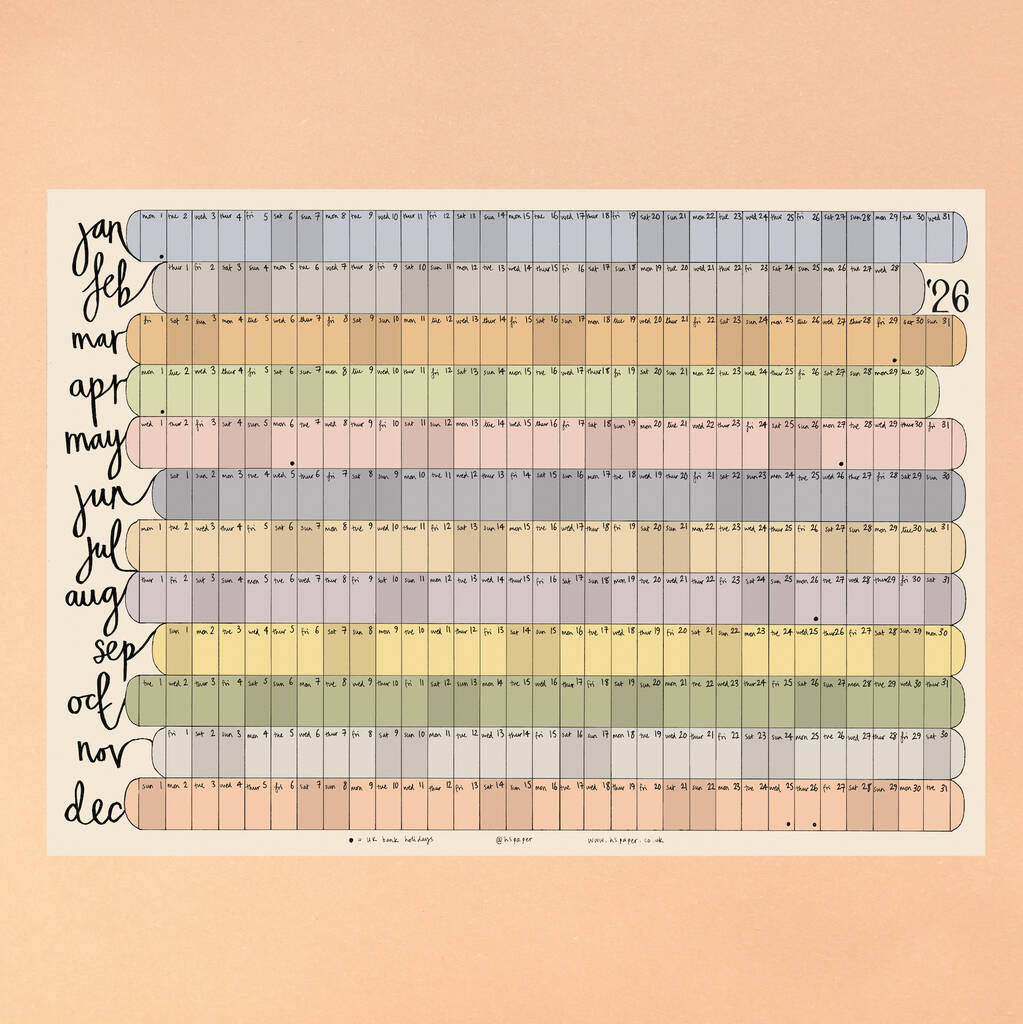 jan mon 1 tue 2 wed 3 thur 4 fri 5 sat 6 sun 7 mon 8 tue 9 wed 10 thur 11 fri 12 sat 13 sun 14 mon 15 tue 16 wed 17 thur 18 fri 19 sat 20 sun 21 mon 22 tue 23 wed 24 thur 25 fri 26 sat 27 sun 28 mon 29 tue 30 wed 31
feb thur 1 fri 2 sat 3 sun 4 mon 5 tue 6 wed 7 thur 8 fri 9 sat 10 sun 11 mon 12 tue 13 wed 14 thur 15 fri 16 sat 17 sun 18 mon 19 tue 20 wed 21 thur 22 fri 23 sat 24 sun 25 mon 26 tue 27 wed 28
'26
mar fri 1 sat 2 sun 3 mon 4 tue 5 wed 6 thur 7 fri 8 sat 9 sun 10 mon 11 tue 12 wed 13 thur 14 fri 15 sat 16 sun 17 mon 18 tue 19 wed 20 thur 21 fri 22 sat 23 sun 24 mon 25 tue 26 wed 27 thur 28 fri 29 sat 30 sun 31
apr mon 1 tue 2 wed 3 thur 4 fri 5 sat 6 sun 7 mon 8 tue 9 wed 10 thur 11 fri 12 sat 13 sun 14 mon 15 tue 16 wed 17 thur 18 fri 19 sat 20 sun 21 mon 22 tue 23 wed 24 thur 25 fri 26 sat 27 sun 28 mon 29 tue 30
may wed 1 thur 2 fri 3 sat 4 sun 5 mon 6 tue 7 wed 8 thur 9 fri 10 sat 11 sun 12 mon 13 tue 14 wed 15 thur 16 fri 17 sat 18 sun 19 mon 20 tue 21 wed 22 thur 23 fri 24 sat 25 sun 26 mon 27 tue 28 wed 29 thur 30 fri 31
jun sat 1 sun 2 mon 3 tue 4 wed 5 thur 6 fri 7 sat 8 sun 9 mon 10 tue 11 wed 12 thur 13 fri 14 sat 15 sun 16 mon 17 tue 18 wed 19 thur 20 fri 21 sat 22 sun 23 mon 24 tue 25 wed 26 thur 27 fri 28 sat 29 sun 30
jul mon 1 tue 2 wed 3 thur 4 fri 5 sat 6 sun 7 mon 8 tue 9 wed 10 thur 11 fri 12 sat 13 sun 14 mon 15 tue 16 wed 17 thur 18 fri 19 sat 20 sun 21 mon 22 tue 23 wed 24 thur 25 fri 26 sat 27 sun 28 mon 29 tue 30 wed 31
aug thur 1 fri 2 sat 3 sun 4 mon 5 tue 6 wed 7 thur 8 fri 9 sat 10 sun 11 mon 12 tue 13 wed 14 thur 15 fri 16 sat 17 sun 18 mon 19 tue 20 wed 21 thur 22 fri 23 sat 24 sun 25 mon 26 tue 27 wed 28 thur 29 fri 30 sat 31
sep sun 1 mon 2 tue 3 wed 4 thur 5 fri 6 sat 7 sun 8 mon 9 tue 10 wed 11 thur 12 fri 13 sat 14 sun 15 mon 16 tue 17 wed 18 thur 19 fri 20 sat 21 sun 22 mon 23 tue 24 wed 25 thur 26 fri 27 sat 28 sun 29 mon 30
oct tue 1 wed 2 thur 3 fri 4 sat 5 sun 6 mon 7 tue 8 wed 9 thur 10 fri 11 sat 12 sun 13 mon 14 tue 15 wed 16 thur 17 fri 18 sat 19 sun 20 mon 21 tue 22 wed 23 thur 24 fri 25 sat 26 sun 27 mon 28 tue 29 wed 30 thur 31
nov fri 1 sat 2 sun 3 mon 4 tue 5 wed 6 thur 7 fri 8 sat 9 sun 10 mon 11 tue 12 wed 13 thur 14 fri 15 sat 16 sun 17 mon 18 tue 19 wed 20 thur 21 fri 22 sat 23 sun 24 mon 25 tue 26 wed 27 thur 28 fri 29 sat 30
dec sun 1 mon 2 tue 3 wed 4 thur 5 fri 6 sat 7 sun 8 mon 9 tue 10 wed 11 thur 12 fri 13 sat 14 sun 15 mon 16 tue 17 wed 18 thur 19 fri 20 sat 21 sun 22 mon 23 tue 24 wed 25 thur 26 fri 27 sat 28 sun 29 mon 30 tue 31
● = UK bank holidays @hspaper www.hspaper.co.uk